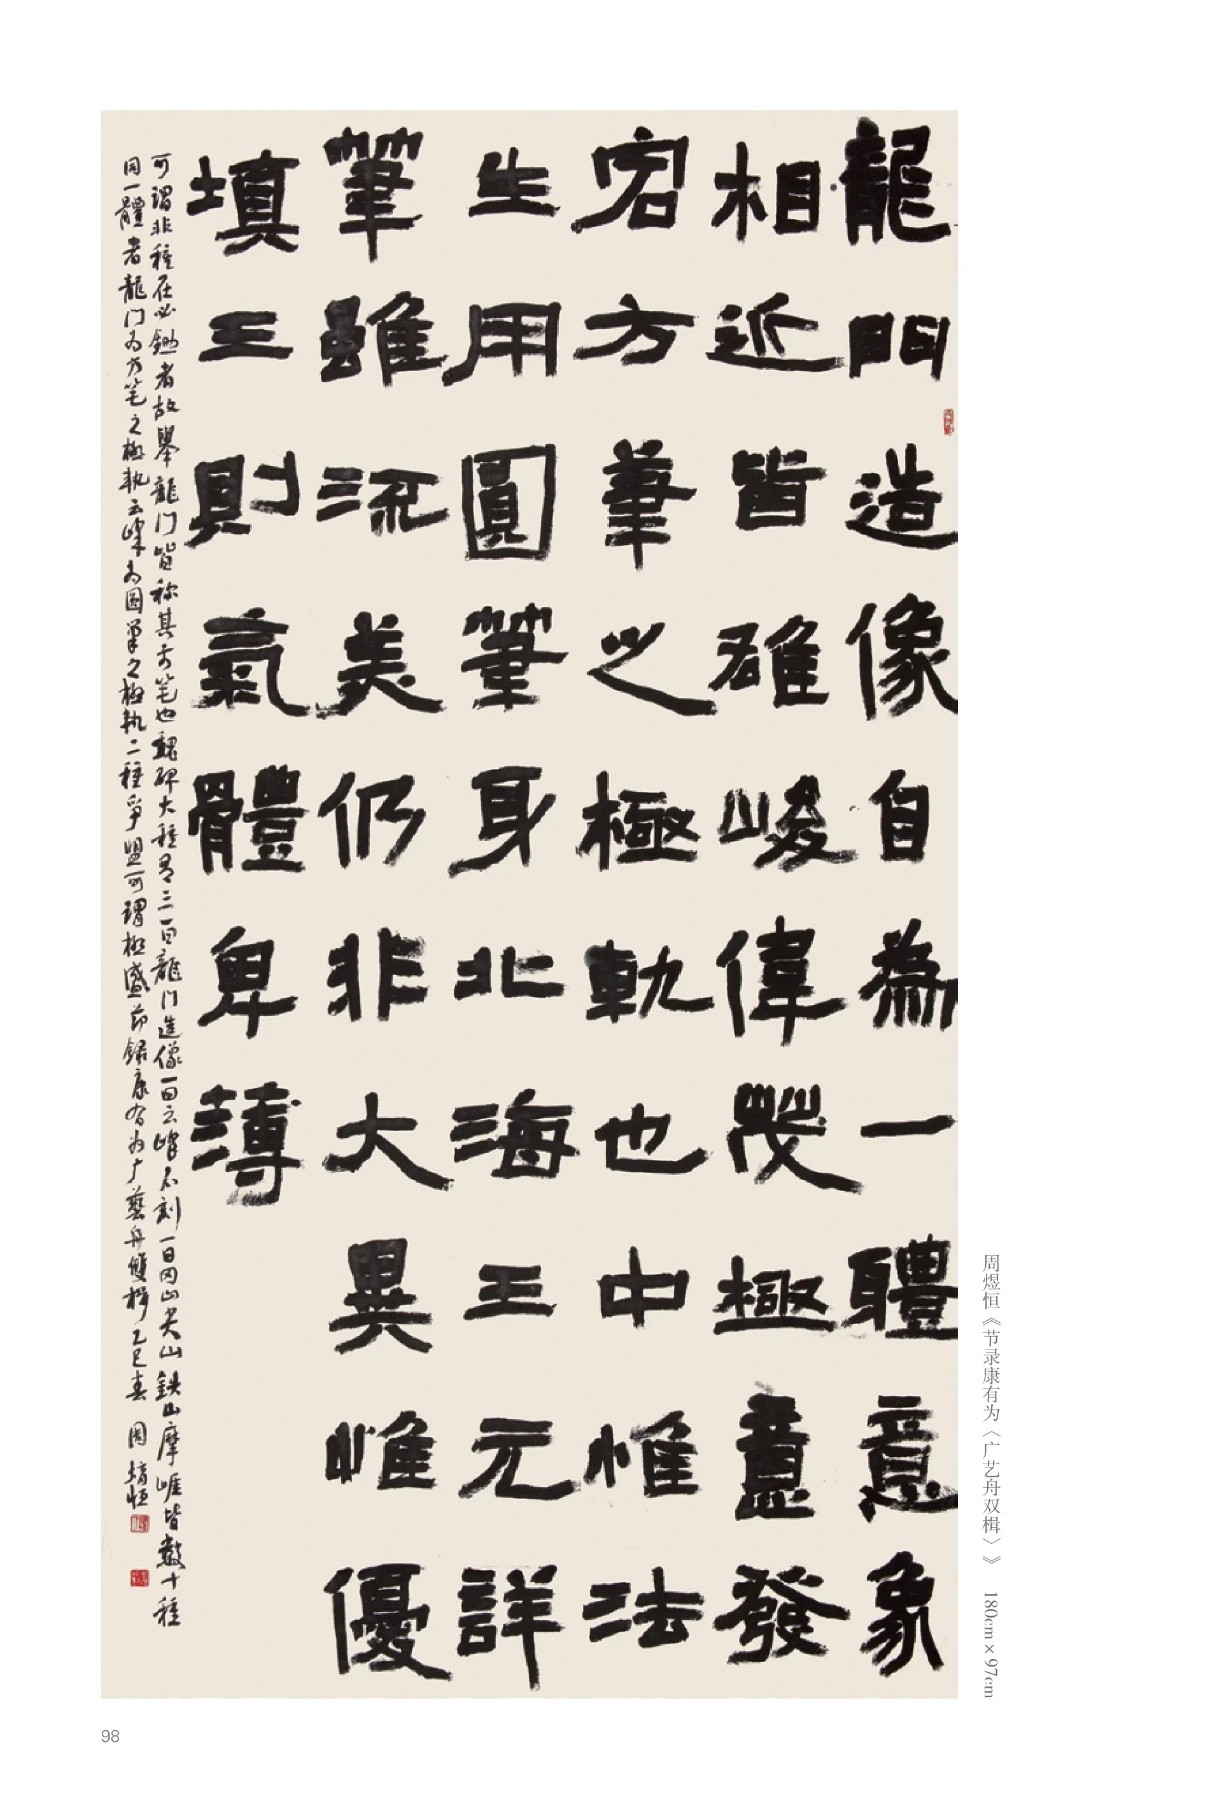 龍門造像自為一體意象
相近皆雄峻偉茂極意發
宕方筆之極軌也中惟法
生用圓筆身北海王元詳
筆雖流美仍非大異惟優
填王則氣體卑薄
可謂非種在必鋤者故舉龍门皆称其方笔也魏碑大種有三一曰龍门造像一曰云峰石刻一曰冈山尖山鉄山摩崖皆數十種
同一體者龍门为方笔之極軌云峰为圆筆之極軌二種爭盟可謂極盛節録康有为广藝舟雙楫乙巳春 周煜恒
周煜恒《节录康有为〈广艺舟双楫〉》 180cm×97cm
98